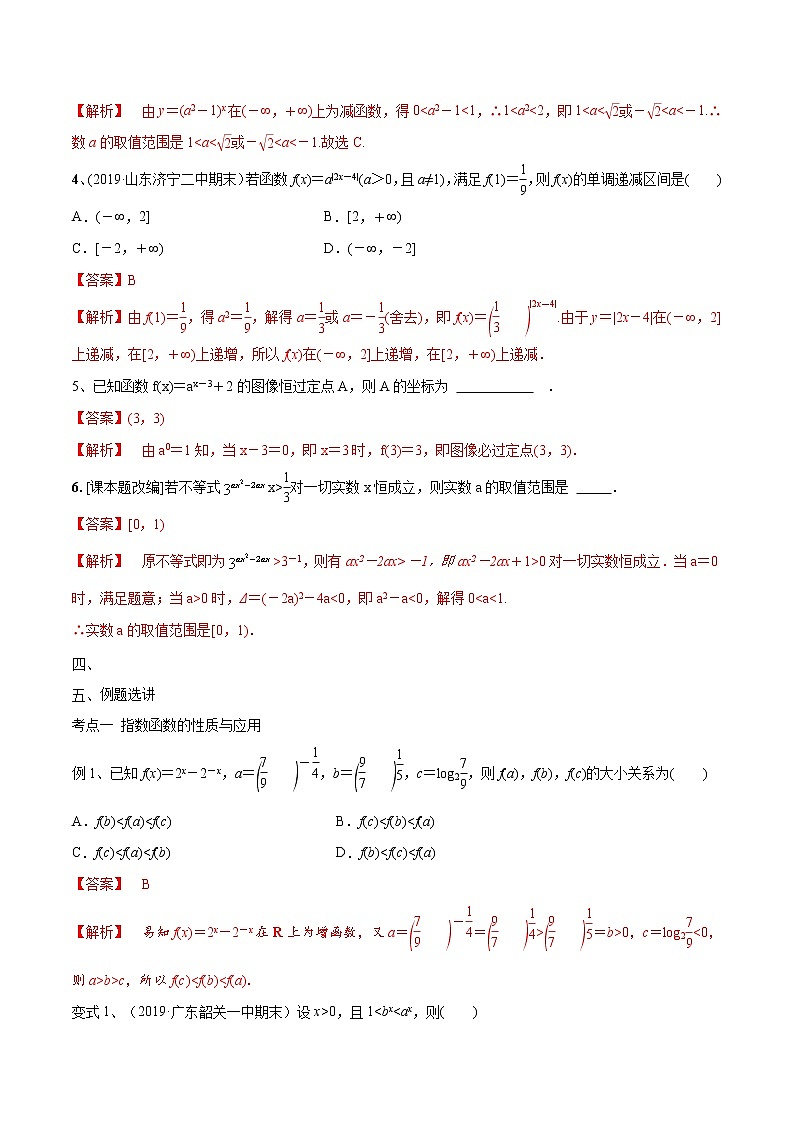 【解析】 由 y＝(a²－1)ˣ在(－∞，＋∞)上为减函数，得 0<a²－1<1，∴1<a²<2，即 1<a<√2或－√2<a<－1.∴
数 a 的取值范围是 1<a<√2或－√2<a<－1.故选 C.
4、(2019·山东济宁二中期末)若函数 f(x)＝a^|2x－4|(a＞0，且 a≠1)，满足 f(1)＝1/9，则 f(x)的单调递减区间是( )
A．(－∞，2] B．[2，＋∞)
C．[－2，＋∞) D．(－∞，－2]
【答案】B
【解析】由 f(1)＝1/9，得 a²＝1/9，解得 a＝1/3或 a＝－1/3(舍去)，即 f(x)＝(1/3)^|2x－4|.由于 y＝|2x－4|在(－∞，2]
上递减，在[2，＋∞)上递增，所以 f(x)在(－∞，2]上递增，在[2，＋∞)上递减．
5、已知函数 f(x)＝a^(x－3)＋2 的图像恒过定点 A，则 A 的坐标为 ___________ ．
【答案】(3，3)
【解析】 由 a⁰＝1 知，当 x－3＝0，即 x＝3 时，f(3)＝3，即图像必过定点(3，3)．
6. [课本题改编]若不等式 3^(ax²－2ax) x>1/3对一切实数 x 恒成立，则实数 a 的取值范围是 _____．
【答案】[0，1)
【解析】 原不等式即为 3^(ax²－2ax) >3^－1，则有 ax²－2ax>－1，即 ax²－2ax＋1>0 对一切实数恒成立．当 a＝0
时，满足题意；当 a>0 时，Δ＝(－2a)²－4a<0，即 a²－a<0，解得 0<a<1.
∴实数 a 的取值范围是[0，1)．
四、
五、例题选讲
考点一 指数函数的性质与应用
例 1、已知 f(x)＝2ˣ－2^－x，a＝(7/9)^－1/4，b＝(9/7)^1/5，c＝log₂7/9，则 f(a)，f(b)，f(c)的大小关系为( )
A．f(b)<f(a)<f(c) B．f(c)<f(b)<f(a)
C．f(c)<f(a)<f(b) D．f(b)<f(c)<f(a)
【答案】 B
【解析】 易知 f(x)＝2ˣ－2^－x 在 R 上为增函数，又 a＝(7/9)^－1/4＝(9/7)^1/4>(9/7)^1/5＝b>0，c＝log₂7/9<0，
则 a>b>c，所以 f(c)<f(b)<f(a)．
变式 1、（2019·广东韶关一中期末）设 x>0，且 1<bˣ<aˣ，则( )